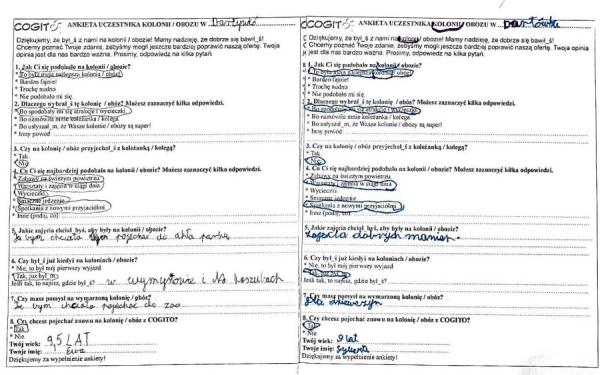 COGITO ANKIETA UCZESTNIKA KOLONII / OBOZU W Darłówko
Dziękujemy, że był_ś z nami na kolonii / obozie! Mamy nadzieję, że dobrze się bawił_ś!
Chcemy poznać Twoje zdanie, żebyśmy mogli jeszcze bardziej poprawić naszą ofertę. Twoja opinia
jest dla nas bardzo ważna. Prosimy, odpowiedz na kilka pytań.
1. Jak Ci się podobało na kolonii / obozie?
* To była moja najlepsza kolonia / obóz!
* Bardzo fajnie!
* Trochę nudno
* Nie podobało mi się.
2. Dlaczego wybrał_ś tę kolonię / obóz? Możesz zaznaczyć kilka odpowiedzi.
* Bo spodobały mi się atrakcje i wycieczki.
* Bo namówiła mnie koleżanka / kolega.
* Bo usłyszał_m, że Wasze kolonie / obozy są super!
* Inny powód:
3. Czy na kolonię / obóz przyjechał_ś z koleżanką / kolegą?
* Tak
* Nie
4. Co Ci się najbardziej podobało na kolonii / obozie? Możesz zaznaczyć kilka odpowiedzi.
* Zabawy na świeżym powietrzu
* Warsztaty i zajęcia w ciągu dnia
* Wycieczki
* Smaczne jedzenie
* Spotkania z nowymi przyjaciółmi
* Inne (podaj, co):
5. Jakie zajęcia chciał_byś, aby były na kolonii / obozie?
Ja bym chciała pojechać do
6. Czy był_ś już kiedyś na koloniach / obozie?
* Nie, to był mój pierwszy wyjazd
* Tak, już był_m
Jeśli tak, to napisz, gdzie był_ś? w i na kaszubach
7. Czy masz pomysł na wymarzoną kolonię / obóz?
Ja bym chciała pojechać do zoo
8. Czy chcesz pojechać znowu na kolonię / obóz z COGITO?
* Tak
* Nie
Twój wiek: 9,5 LAT
Twoje imię: Ewa
Dziękujemy za wypełnienie ankiety!
COGITO ANKIETA UCZESTNIKA KOLONII / OBOZU W Darłówko
Dziękujemy, że był_ś z nami na kolonii / obozie! Mamy nadzieję, że dobrze się bawił_ś!
Chcemy poznać Twoje zdanie, żebyśmy mogli jeszcze bardziej poprawić naszą ofertę. Twoja opinia
jest dla nas bardzo ważna. Prosimy, odpowiedz na kilka pytań.
1. Jak Ci się podobało na kolonii / obozie?
* To była moja najlepsza kolonia / obóz!
* Bardzo fajnie!
* Trochę nudno
* Nie podobało mi się.
2. Dlaczego wybrał_ś tę kolonię / obóz? Możesz zaznaczyć kilka odpowiedzi.
* Bo spodobały mi się atrakcje i wycieczki.
* Bo namówiła mnie koleżanka / kolega.
* Bo usłyszał_m, że Wasze kolonie / obozy są super!
* Inny powód:
3. Czy na kolonię / obóz przyjechał_ś z koleżanką / kolegą?
* Tak
* Nie
4. Co Ci się najbardziej podobało na kolonii / obozie? Możesz zaznaczyć kilka odpowiedzi.
* Zabawy na świeżym powietrzu
* Warsztaty i zajęcia w ciągu dnia
* Wycieczki
* Smaczne jedzenie
* Spotkania z nowymi przyjaciółmi
* Inne (podaj, co):
5. Jakie zajęcia chciał_byś, aby były na kolonii / obozie?
dobrych manier.
6. Czy był_ś już kiedyś na koloniach / obozie?
* Nie, to był mój pierwszy wyjazd
* Tak, już był_m
Jeśli tak, to napisz, gdzie był_ś?
7. Czy masz pomysł na wymarzoną kolonię / obóz?
dla dziewczyn
8. Czy chcesz pojechać znowu na kolonię / obóz z COGITO?
* Tak
* Nie
Twój wiek: 9 lat
Twoje imię:
Dziękujemy za wypełnienie ankiety!